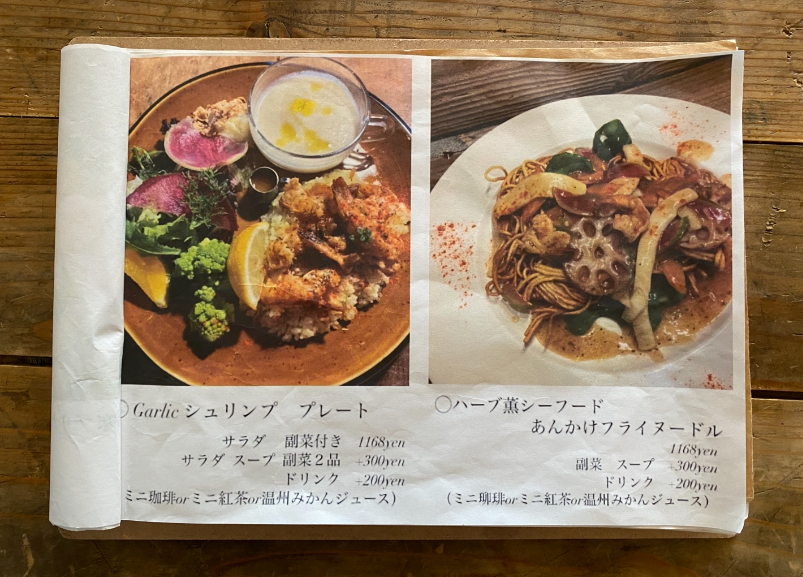 ○Garlic シュリンプ プレート
サラダ 副菜付き 1168yen
サラダ スープ 副菜2品 +300yen
ドリンク +200yen
ミニ珈琲orミニ紅茶or温州みかんジュース)
○ハーブ薫シーフード
あんかけフライヌードル
1168yen
副菜 スープ +300yen
ドリンク +200yen
(ミニ珈琲orミニ紅茶or温州みかんジュース)